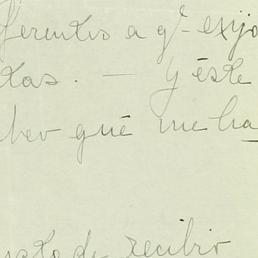 ferentes a qᵉ exijo
tas. — Y éste
ber qué me ha
de recibir